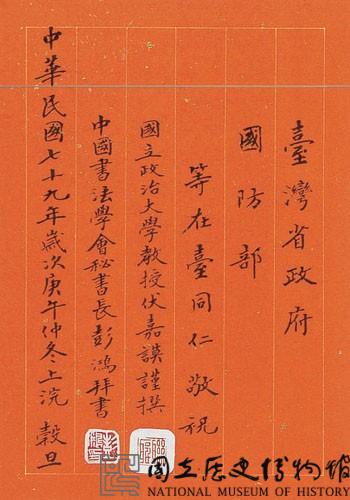 臺灣省政府
國防部
等在臺同仁敬祝
國立政治大學教授伏嘉謨謹撰
中國書法學會秘書長彭鴻拜書
中華民國七十九年歲次庚午仲冬上浣 穀旦
國立歷史博物館
NATIONAL MUSEUM OF HISTORY